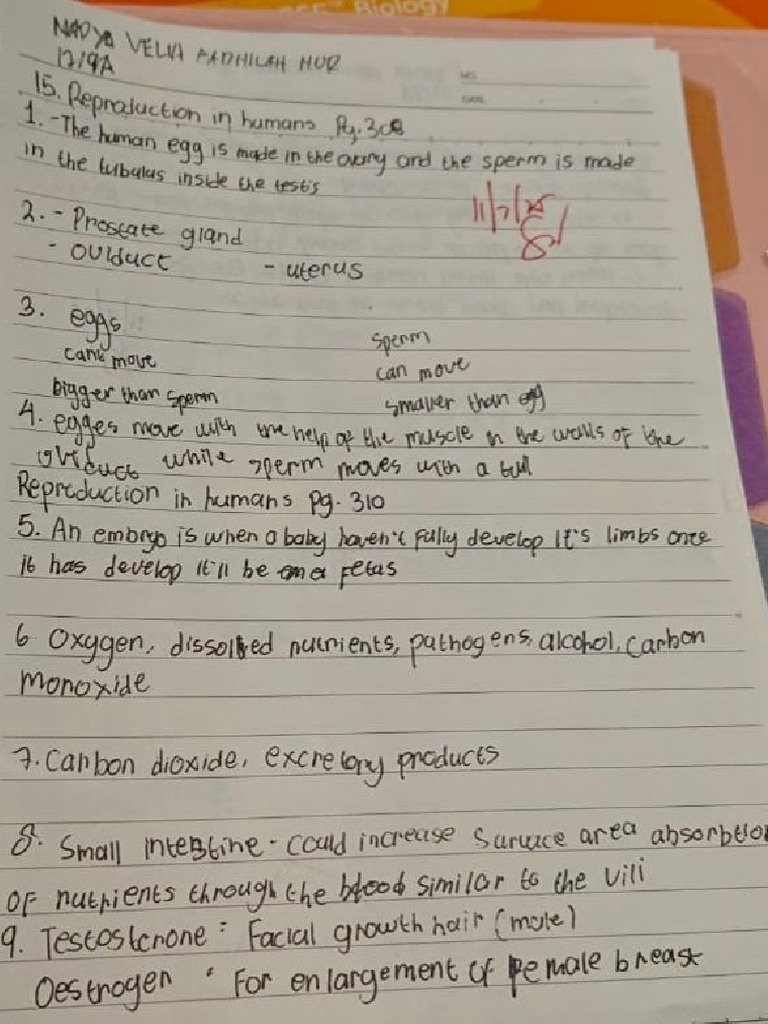 Biology
NADYA VELIA FADHILAH NUR
12/9A
NO.
DATE
15. Reproduction in humans Pg. 308
1. - The human egg is made in the ovary and the sperm is made
in the tubalus inside the testis
11/7/25
2. - Prostate gland
- oviduct - uterus
3. eggs sperm
can't move can move
bigger than sperm smaller than egg
4. egges move with the help of the muscle in the walls of the
oviduct while sperm moves with a tail
Reproduction in humans Pg. 310
5. An embryo is when a baby haven't fully develop It's limbs once
it has develop it'll be a fetus
6 Oxygen, dissolved nutrients, pathogens, alcohol, carbon
monoxide
7. Carbon dioxide, excretory products
8. Small intestine - could increase surface area absorbtion
of nutrients through the blood similar to the vili
9. Testosterone : Facial growth hair (male)
Oestrogen : For enlargement of female breast